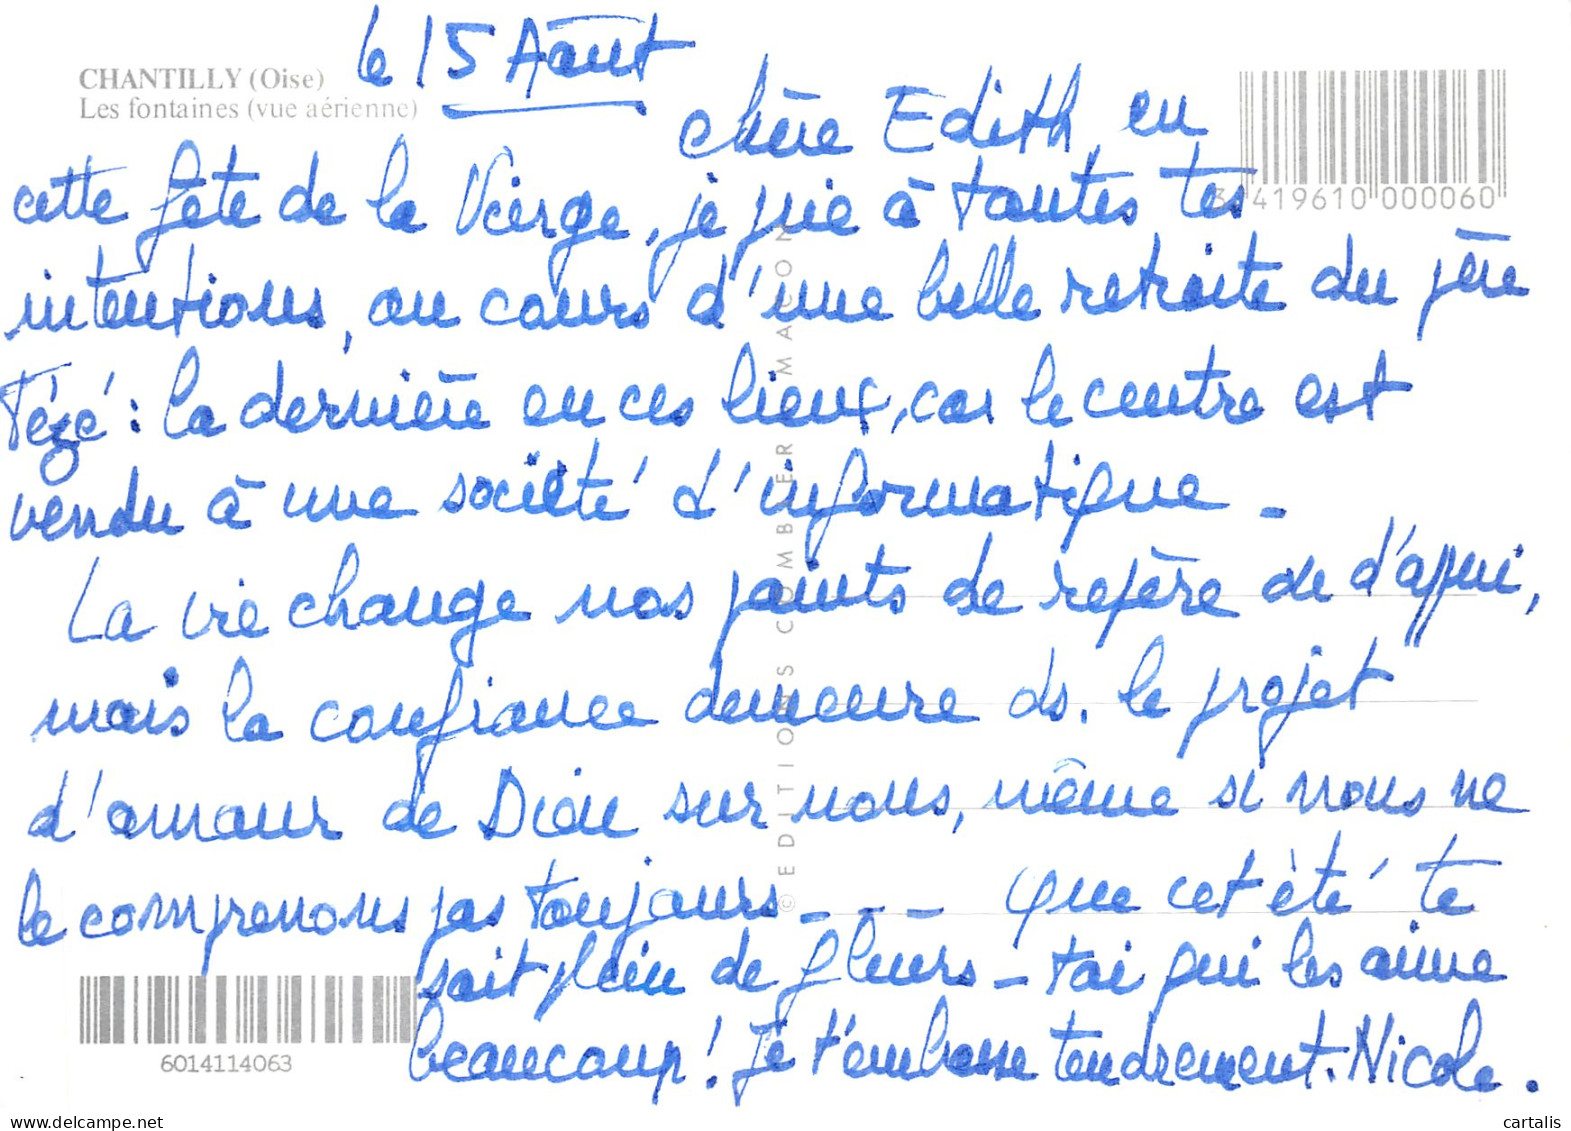 CHANTILLY (Oise)
Les fontaines (vue aérienne)
le 15 Août
chère Edith, en
cette fête de la Vierge, je prie à toutes tes
intentions, au cours d'une belle retraite du père
Tézé : la dernière en ces lieux, car le centre est
vendu à une société d'informatique -
La vie change nos points de repère ou de d'appui,
mais la confiance demeure ds. le projet
d'amour de Dieu sur nous, même si nous ne
le comprenons pas toujours - - - Que cet été te
soit plein de fleurs - toi qui les aime
beaucoup ! Je t'embrasse tendrement. Nicole.
3 419610 000060
© EDITIONS COMBIER MACON
6014114063
www.delcampe.net
cartalis